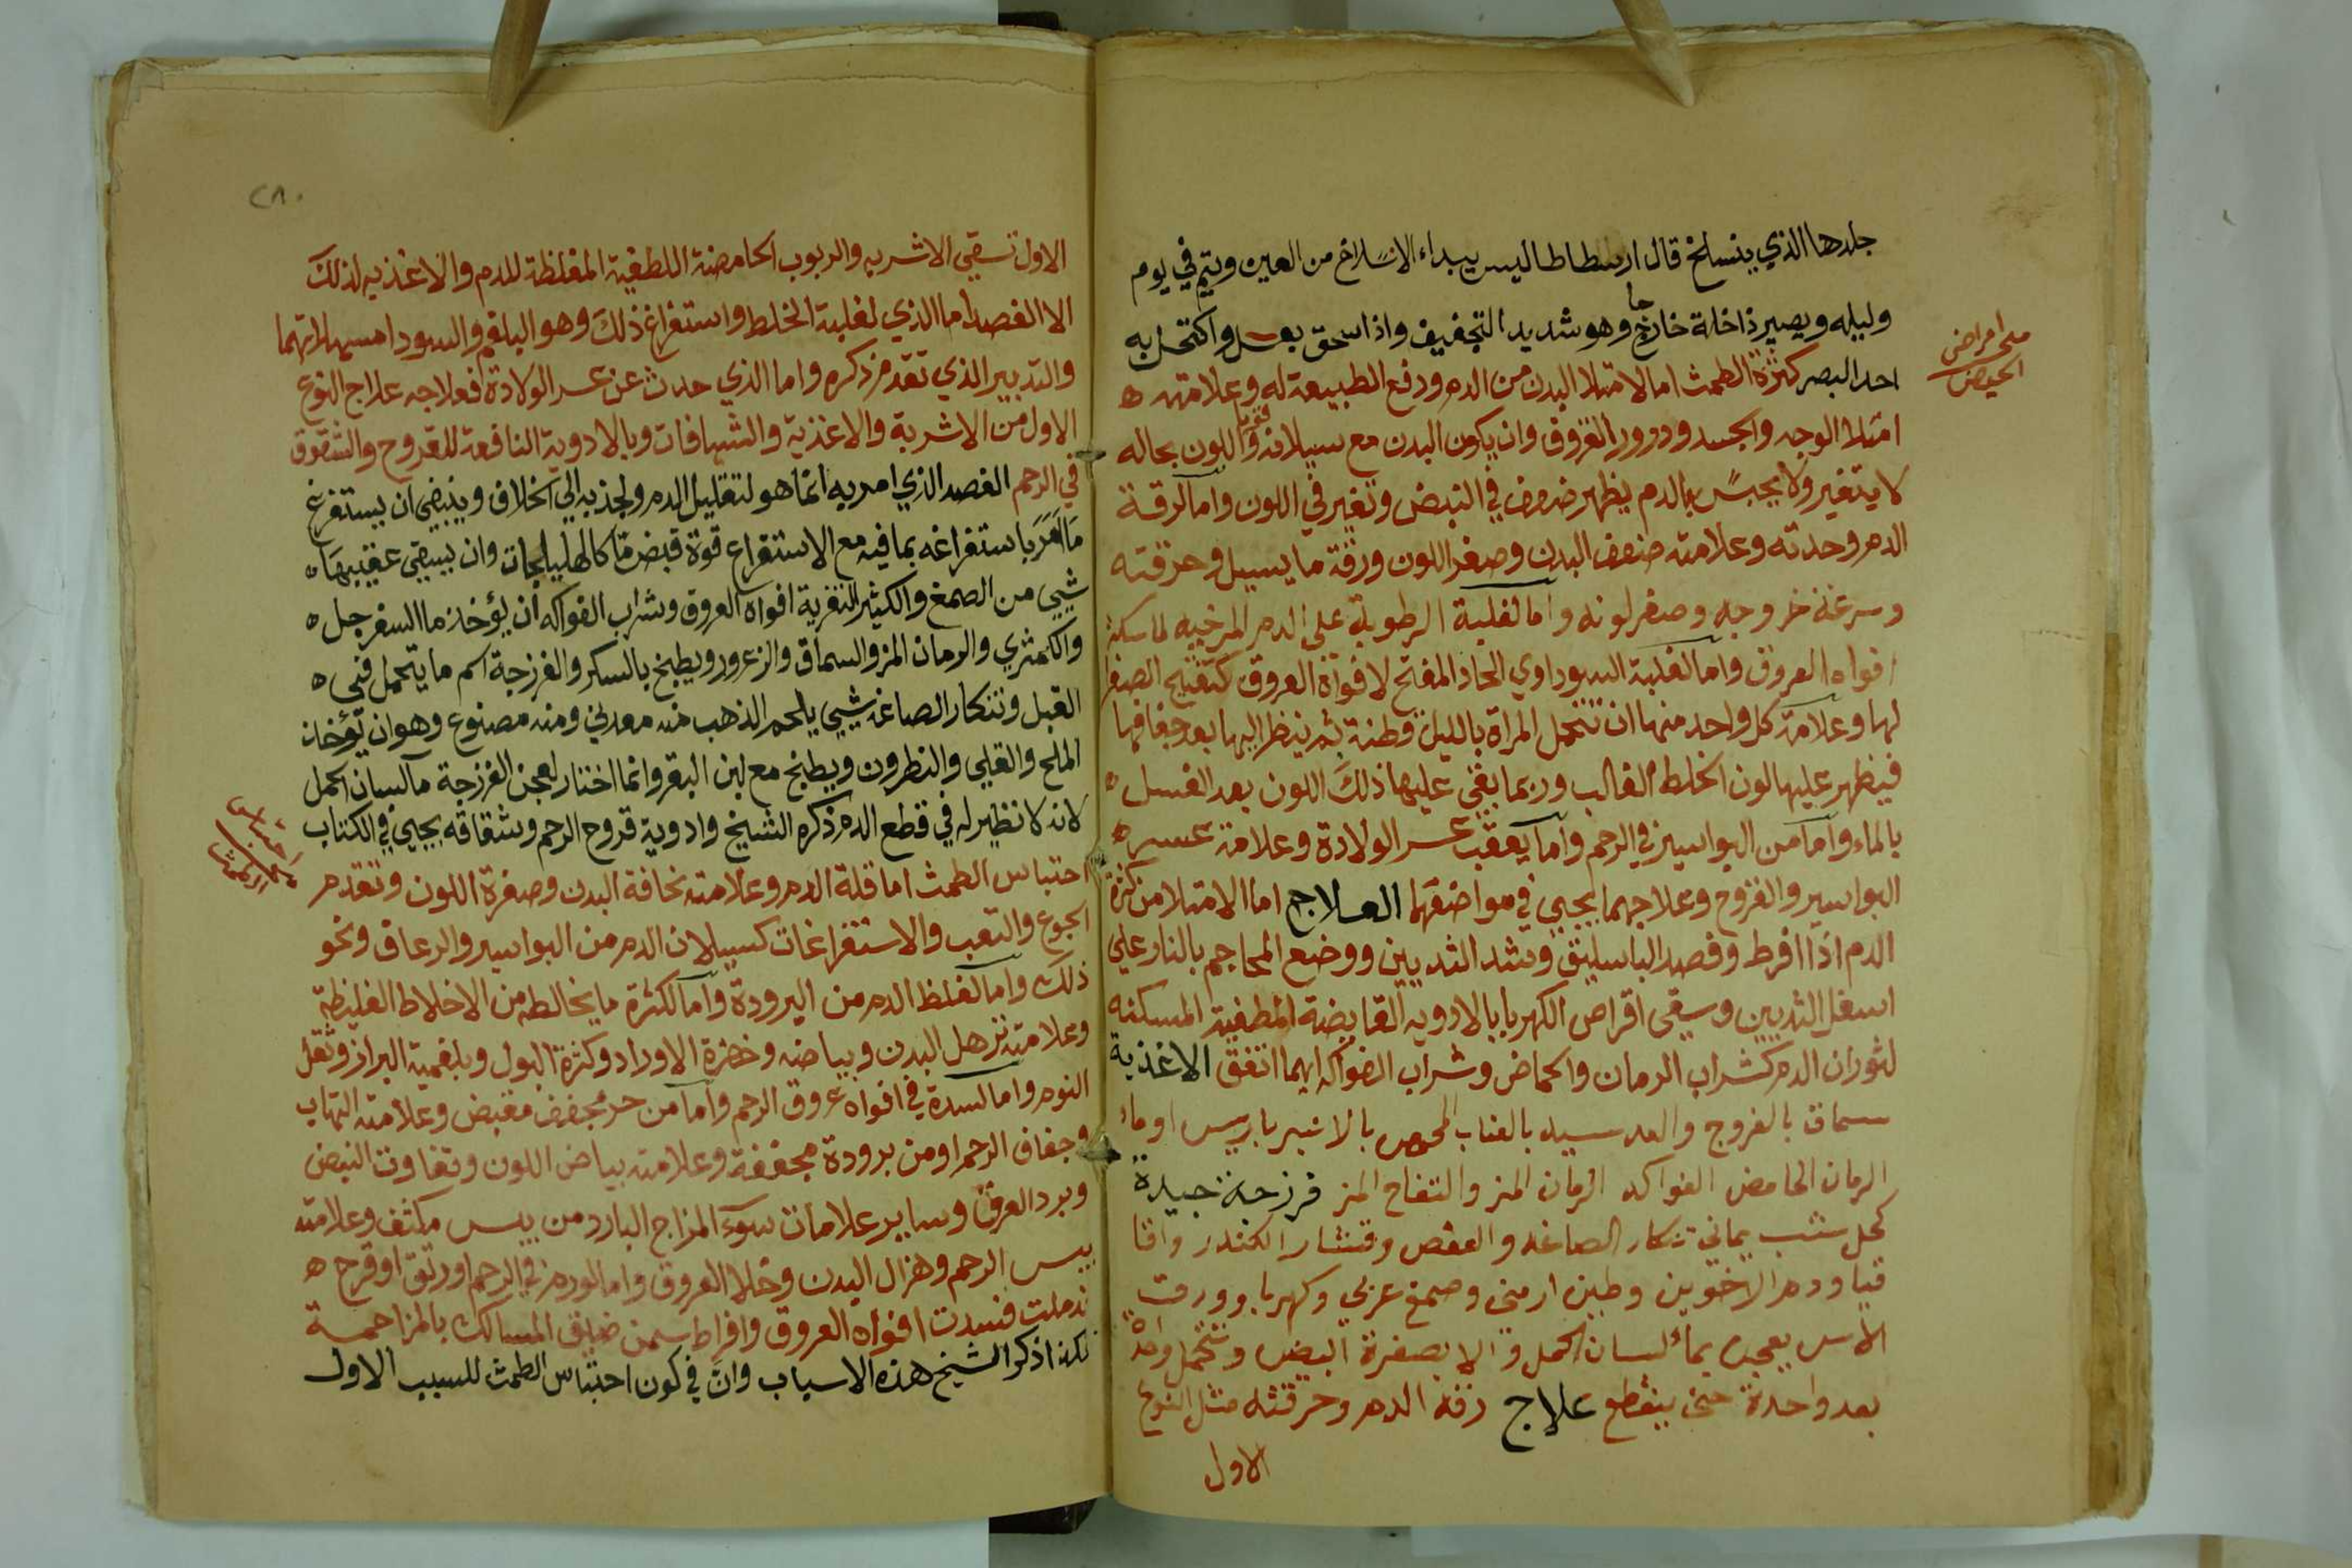 جلدها الذي ينسلخ قال ارسطاطاليس يبداء الانسلاخ من العين ويتم في يوم
وليله ويصير داخلة خارجا وهو شديد التجفيف واذا سحق بعسل واكتحل به
احد البصر كثرة الطمث اما لامتلا البدن من الدم ودفع الطبيعة له وعلامته
امتلا الوجه والجسد ودرور العروق وان يكون البدن مع سيلانه قويا واللون بحاله
لا يتغير ولا يحبس بالدم يظهر ضعف في النبض وتغير في اللون واما لرقة
الدم وحدته وعلامته ضعف البدن وصفر اللون ورقة ما يسيل وحرقته
وسرعة خروجه وصفر لونه واما لغلبة الرطوبة على الدم المرخيه لماسكة
افواه العروق واما لغلبة السوداوي الحاد المفتح لافواة العروق كتفتيح الصفرا
لها وعلامة كل واحد منها ان تتحمل المراة بالليل قطنة ثم ينظر اليها بعد جفافها
فيظهر عليها لون الخلط الغالب وربما بقى عليها ذلك اللون بعد الغسل
بالماء واما من البواسير في الرحم واما يعقب عسر الولادة وعلامة عسره
البواسير والقروح وعلاجهما يجيي في مواضعهما العلاج اما الامتلا من كثرة
الدم اذا افرط وفصد الباسليق وشد الثديين ووضع المحاجم بالنار علي
اسفل الثديين وسقى اقراص الكهربا بالادويه القابضة المطفية المسكنه
لثوران الدم كشراب الرمان والحماض وشراب الفواكه ايهما اتفق الاغذية
سماق بالفروج والعدسيه بالعناب المحمص بالانبرباريس او ماء
الرمان الحامض الفواكه الرمان المز والتفاح المز فرزجة جيدة
كحل شب يماني تنكار الصاغه والعفص وقشار الكندر واقا
قيا ودم الاخوين وطين ارمني وصمغ عربي وكهربا وورق
الاس يعجن بماء لسان الحمل والا بصفرة البيض وتتحمل واحدة
بعد واحدة حتى ينقطع علاج رقة الدم وحرقته مثل النوع
الاول
ملحى امراض
الحيض
٢٨٠
الاول تسقى الاشربه والربوب الحامضة اللطفية المغلظة للدم والاغذيه لذلك
الا الفصد اما الذي لغلبة الخلط واستفراغ ذلك وهو البلغم والسودا مسهلاتهما
والتدبير الذي تقدم ذكره واما الذي حدث عن عسر الولادة فعلاجه علاج النوع
الاول من الاشربة والاغذية والشيافات وبالادوية النافعة للقروح والشقوق
في الرحم الفصد الذي امر به انما هو لتقليل الدم ولجذبه الي الخلاف وينبغي ان يستفرغ
ما امر باستفراغه بما فيه مع الاستفراغ قوة قبض ما كالهليلجات وان يسقى عقيبها
شيي من الصمغ والكثيرا لتغرية افواه العروق وشراب الفواكه ان يؤخذ ما السفرجل
والكمثري والرمان المز والسماق والزعرور ويطبخ بالسكر والفرزجة اسم ما يتحمل في
القبل وتنكار الصاغه شيي يلحم الذهب منه معدني ومنه مصنوع وهو ان يؤخذ
الملح والقلي والنطرون ويطبخ مع لبن البقر وانما اختار لعجن الفرزجة ما لسان الحمل
لانه لا نظير له في قطع الدم ذكره الشيخ وادوية قروح الرحم وشقاقه يجيي في الكتاب
احتباس الطمث اما قلة الدم وعلامته نحافة البدن وصفرة اللون وتقدم
الجوع والتعب والاستفراغات كسيلان الدم من البواسير والرعاف ونحو
ذلك واما لغلظ الدم من البرودة واما لكثرة ما يخالطه من الاخلاط الغليظة
وعلامته ترهل البدن وبياضه وخضرة الاوراد وكثرة البول وبلغمية البراز وثقل
النوم واما لسدة في افواه عروق الرحم واما من حر مجفف مقبض وعلامته التهاب
وجفاف الرحم او من برودة مجففة وعلامته بياض اللون وتفاوت النبض
وبرد العرق وساير علامات سوء المزاج البارد من يبس مكثف وعلامته
يبس الرحم وهزال البدن وخلا العروق واما لورم في الرحم او رتق او قرح
ندملت فسدت افواه العروق وافراط سمن ضيق المسالك بالمزاحمة
كذا ذكر الشيخ هذه الاسباب وان في كون احتباس الطمث للسبب الاول
احتباس
الطمث